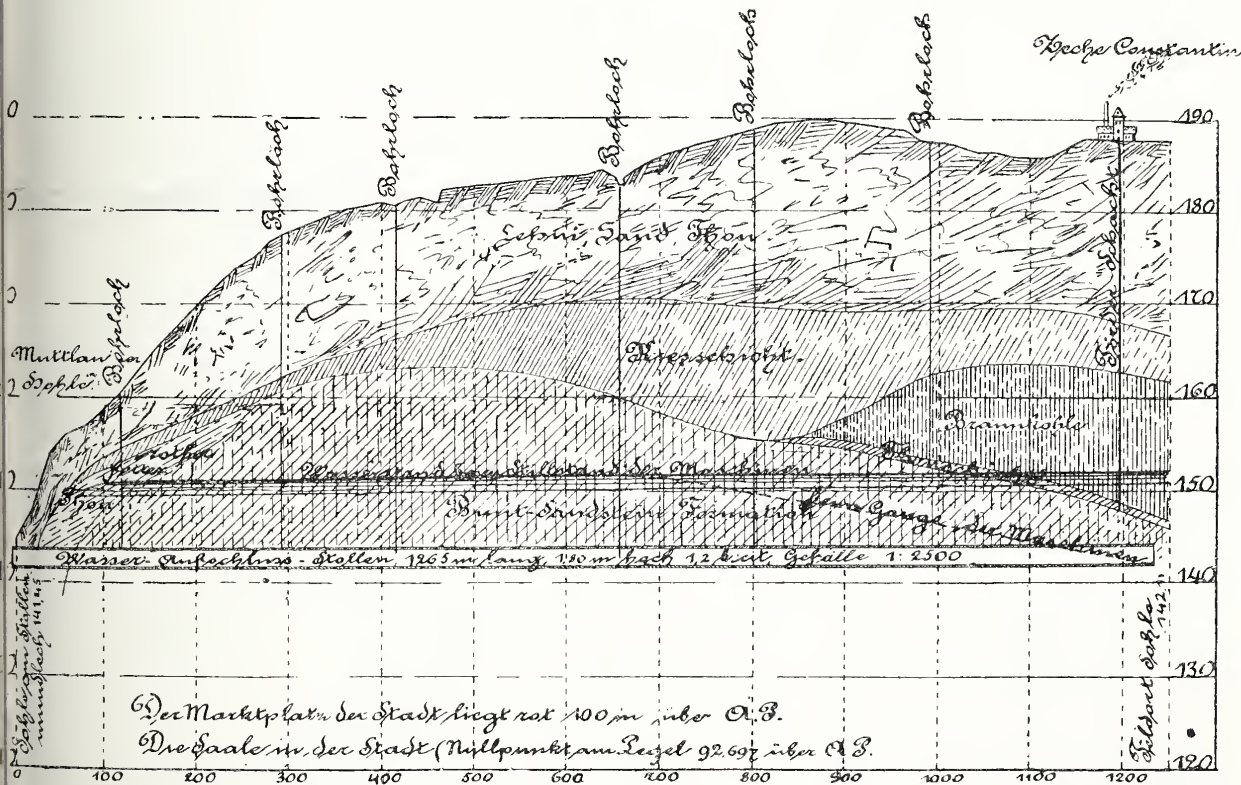 Zeche Constantin
Bohrloch
Bohrloch
Bohrloch
Bohrloch
Bohrloch
Bohrloch
190
180
170
160
150
140
130
120
Lehm, Sand, Thon.
Förder Schacht
Kiesschicht.
Braunkohle
rother
Thon
Wasserstand beim Stillstand der Maschinen
Bunt-Sandstein Formation
Gange der Maschinen
Wasser-Aufschluss-Stollen 1265 m lang, 1,80 m hoch 1,2 breit, Gefälle 1:2500
Sohle am Stollen
mundloch 141,45
Sohle
142
Der Marktplatz der Stadt liegt rot 100 m über A.P.
Die Saale in der Stadt (Nullpunkt am Pegel 92.697 über A.P.
0 100 200 300 400 500 600 700 800 900 1000 1100 1200